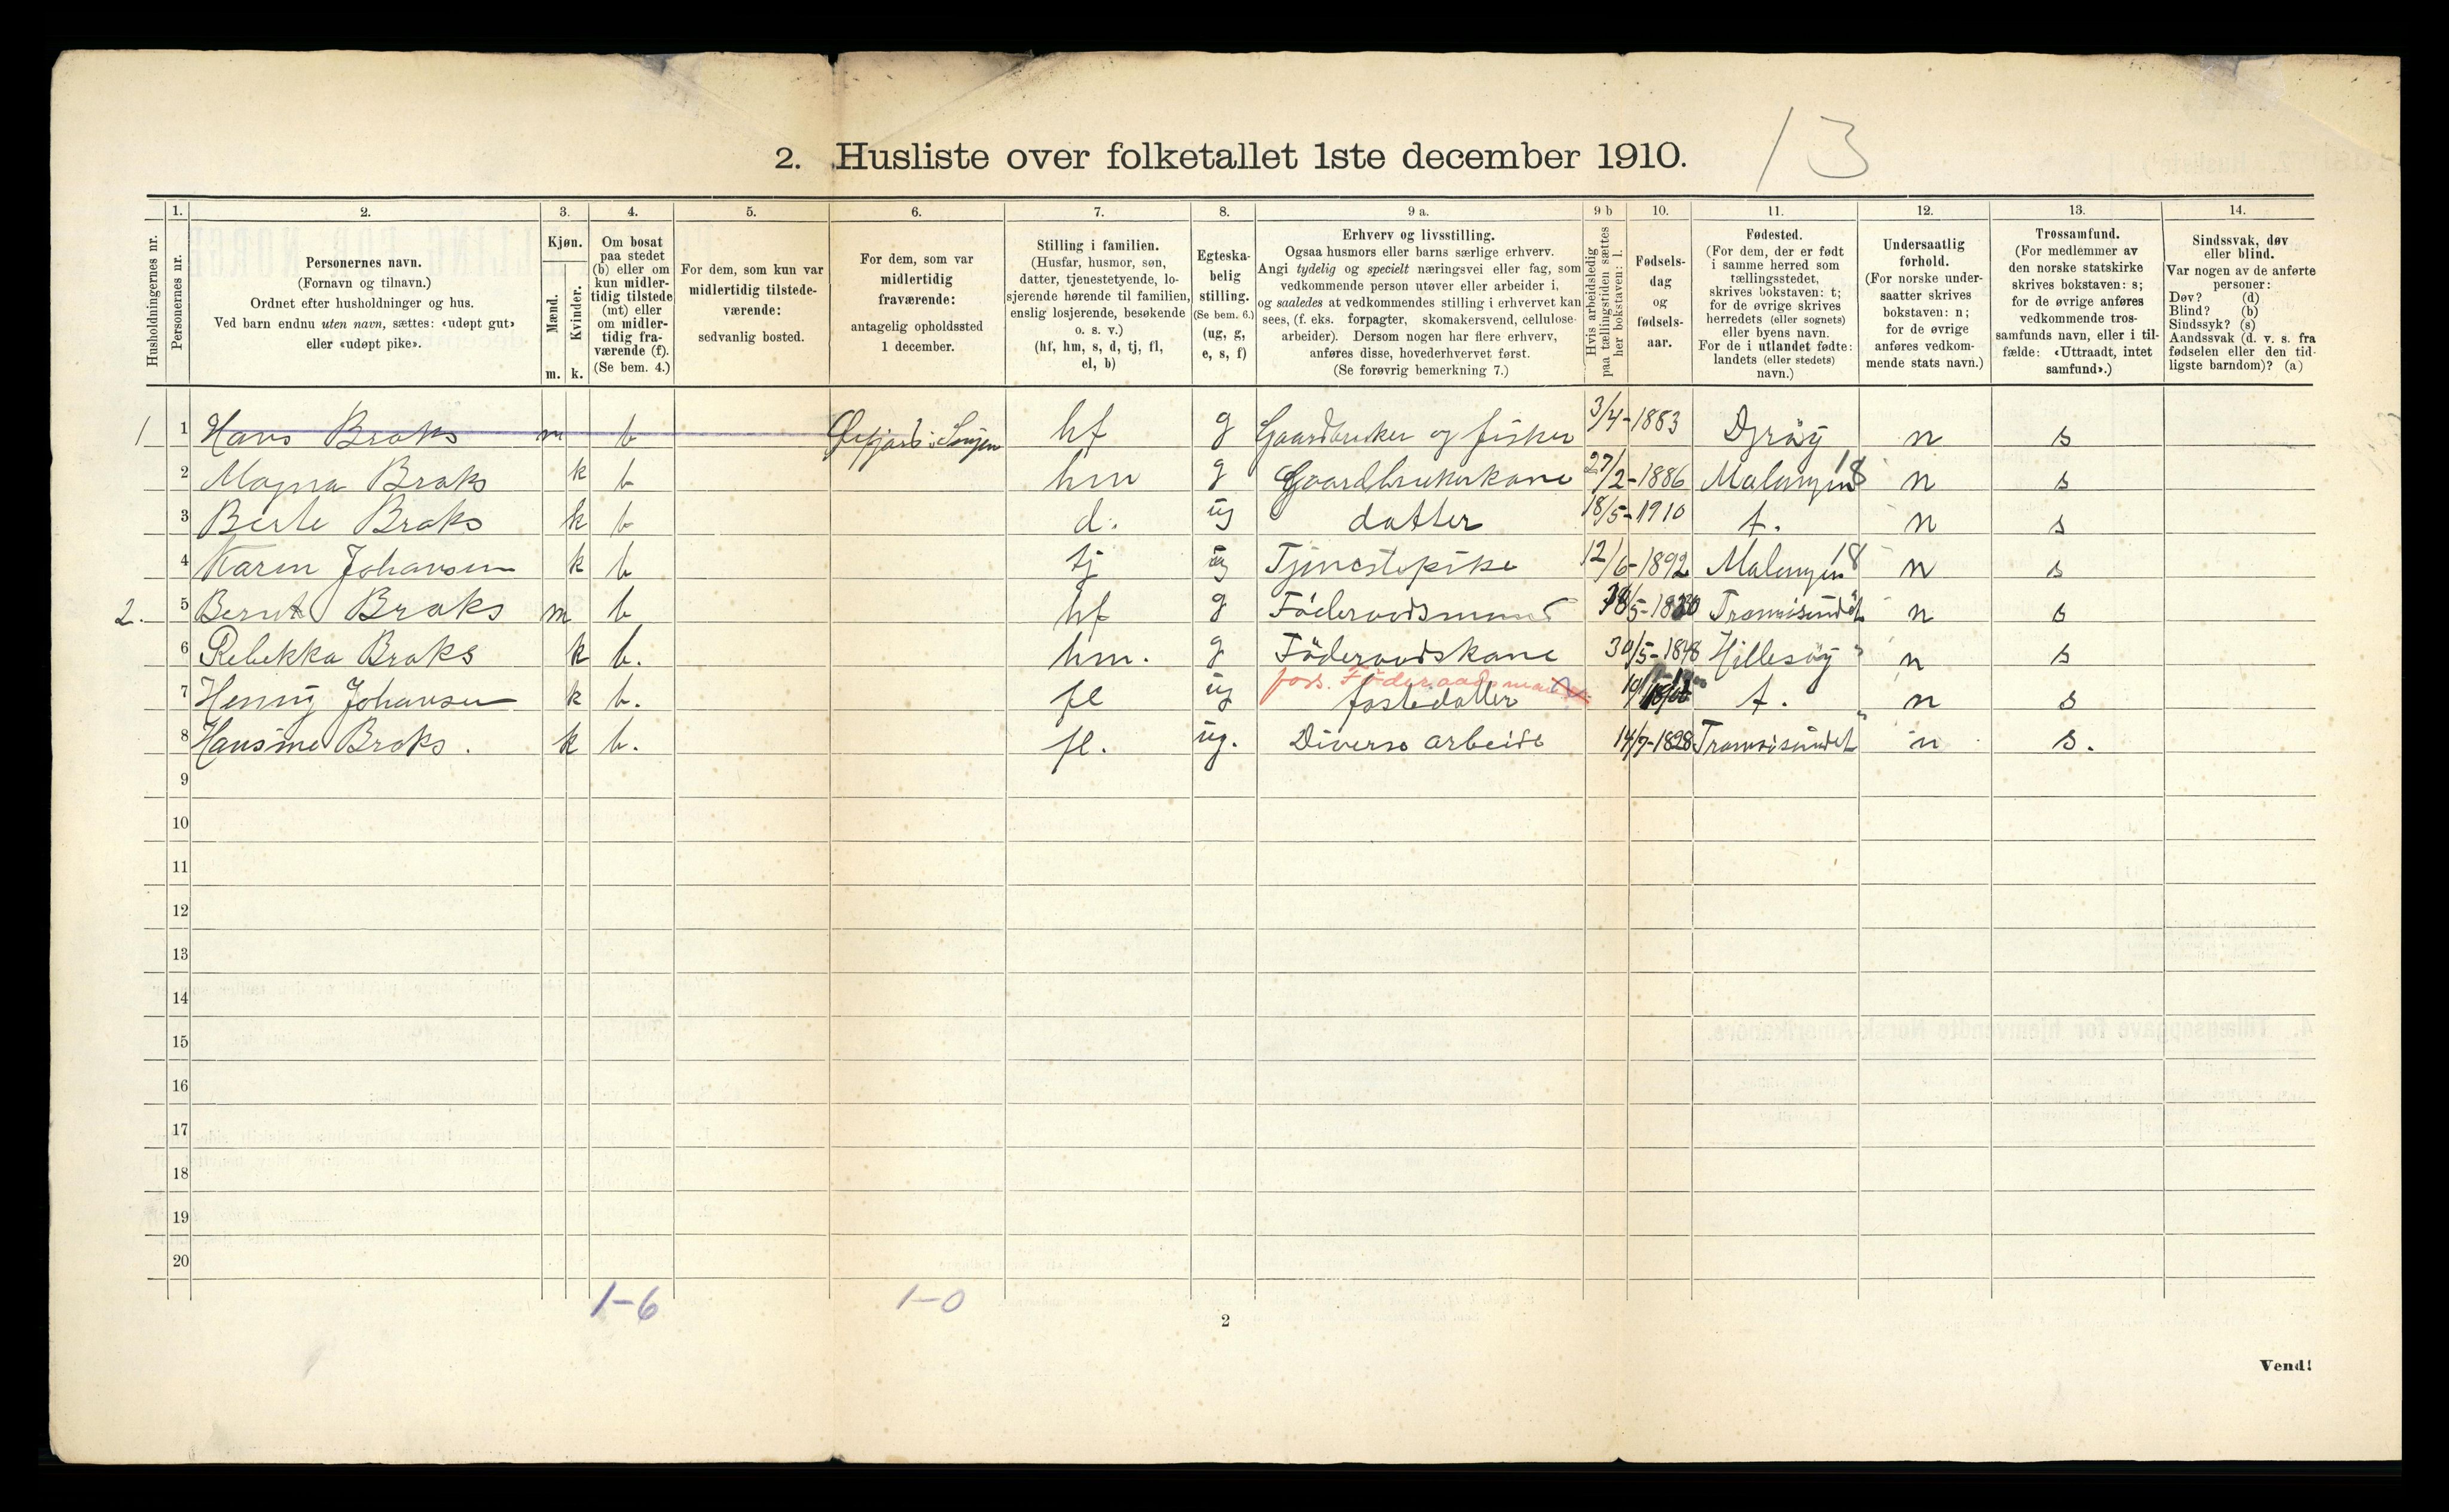 13
2. Husliste over folketallet 1ste december 1910.
Husholdningernes nr.
1. Personernes nr.
2. Personernes navn.
(Fornavn og tilnavn.)
Ordnet efter husholdninger og hus.
Ved barn endnu uten navn, sættes: «udøpt gut»
eller «udøpt pike».
3. Kjøn.
Mænd. Kvinder.
m. k.
4. Om bosat
paa stedet
(b) eller om
kun midler-
tidig tilstede
(mt) eller
om midler-
tidig fra-
værende (f).
(Se bem. 4.)
5. For dem, som kun var
midlertidig tilstede-
værende:
sedvanlig bosted.
6. For dem, som var
midlertidig
fraværende:
antagelig opholdssted
1 december.
7. Stilling i familien.
(Husfar, husmor, søn,
datter, tjenestetyende, lo-
sjerende hørende til familien,
enslig losjerende, besøkende
o. s. v.)
(hf, hm, s, d, tj, fl,
el, b)
8. Egteska-
belig
stilling.
(Se bem. 6.)
(ug, g,
e, s, f)
9 a. Erhverv og livsstilling.
Ogsaa husmors eller barns særlige erhverv.
Angi tydelig og specielt næringsvei eller fag, som
vedkommende person utøver eller arbeider i,
og saaledes at vedkommendes stilling i erhvervet kan
sees, (f. eks. forpagter, skomakersvend, cellulose-
arbeider). Dersom nogen har flere erhverv,
anføres disse, hovederhvervet først.
(Se forøvrig bemerkning 7.)
9 b Hvis arbeidsledig
paa tællingstiden sættes
her bokstaven: l.
10. Fødsels-
dag
og
fødsels-
aar.
11. Fødested.
(For dem, der er født
i samme herred som
tællingsstedet,
skrives bokstaven: t;
for de øvrige skrives
herredets (eller sognets)
eller byens navn.
For de i utlandet fødte:
landets (eller stedets)
navn.)
12. Undersaatlig
forhold.
(For norske under-
saatter skrives
bokstaven: n;
for de øvrige
anføres vedkom-
mende stats navn.)
13. Trossamfund.
(For medlemmer av
den norske statskirke
skrives bokstaven: s;
for de øvrige anføres
vedkommende tros-
samfunds navn, eller i til-
fælde: «Uttraadt, intet
samfund».)
14. Sindssvak, døv
eller blind.
Var nogen av de anførte
personer:
Døv? (d)
Blind? (b)
Sindssyk? (s)
Aandssvak (d. v. s. fra
fødselen eller den tid-
ligste barndom)? (a)
1 1 Hans Braks m b hf g Gaardbruker og fisker 3/4-1883 Dyröy n s
2 Magna Braks k b hm g Gaardbrukerkone 27/2-1886 Malangen 18 n s
3 Berte Braks k b d. ug datter 18/5-1910 t. n s
4 Karen Johansen k b tj ug Tjenestepike 12/6-1892 Malangen 18 n s
2. 5 Bernt Braks m b hf g Föderaadsmand Tromsösundet n s
6 Rebekka Braks k b. hm. g Föderaadskone 30/5-1848 Hillesöy n s
fors. Föderaadsmand
7 Henny Johansen k b. fl ug fostedatter t. n s
8 Hansine Braks. k b. fl. ug. Diverse arbeide 14/7-1828 Tromsösundet n s.
9
10
11
12
13
14
15
16
17
18
19
20
1-6 1-0
2
Vend!